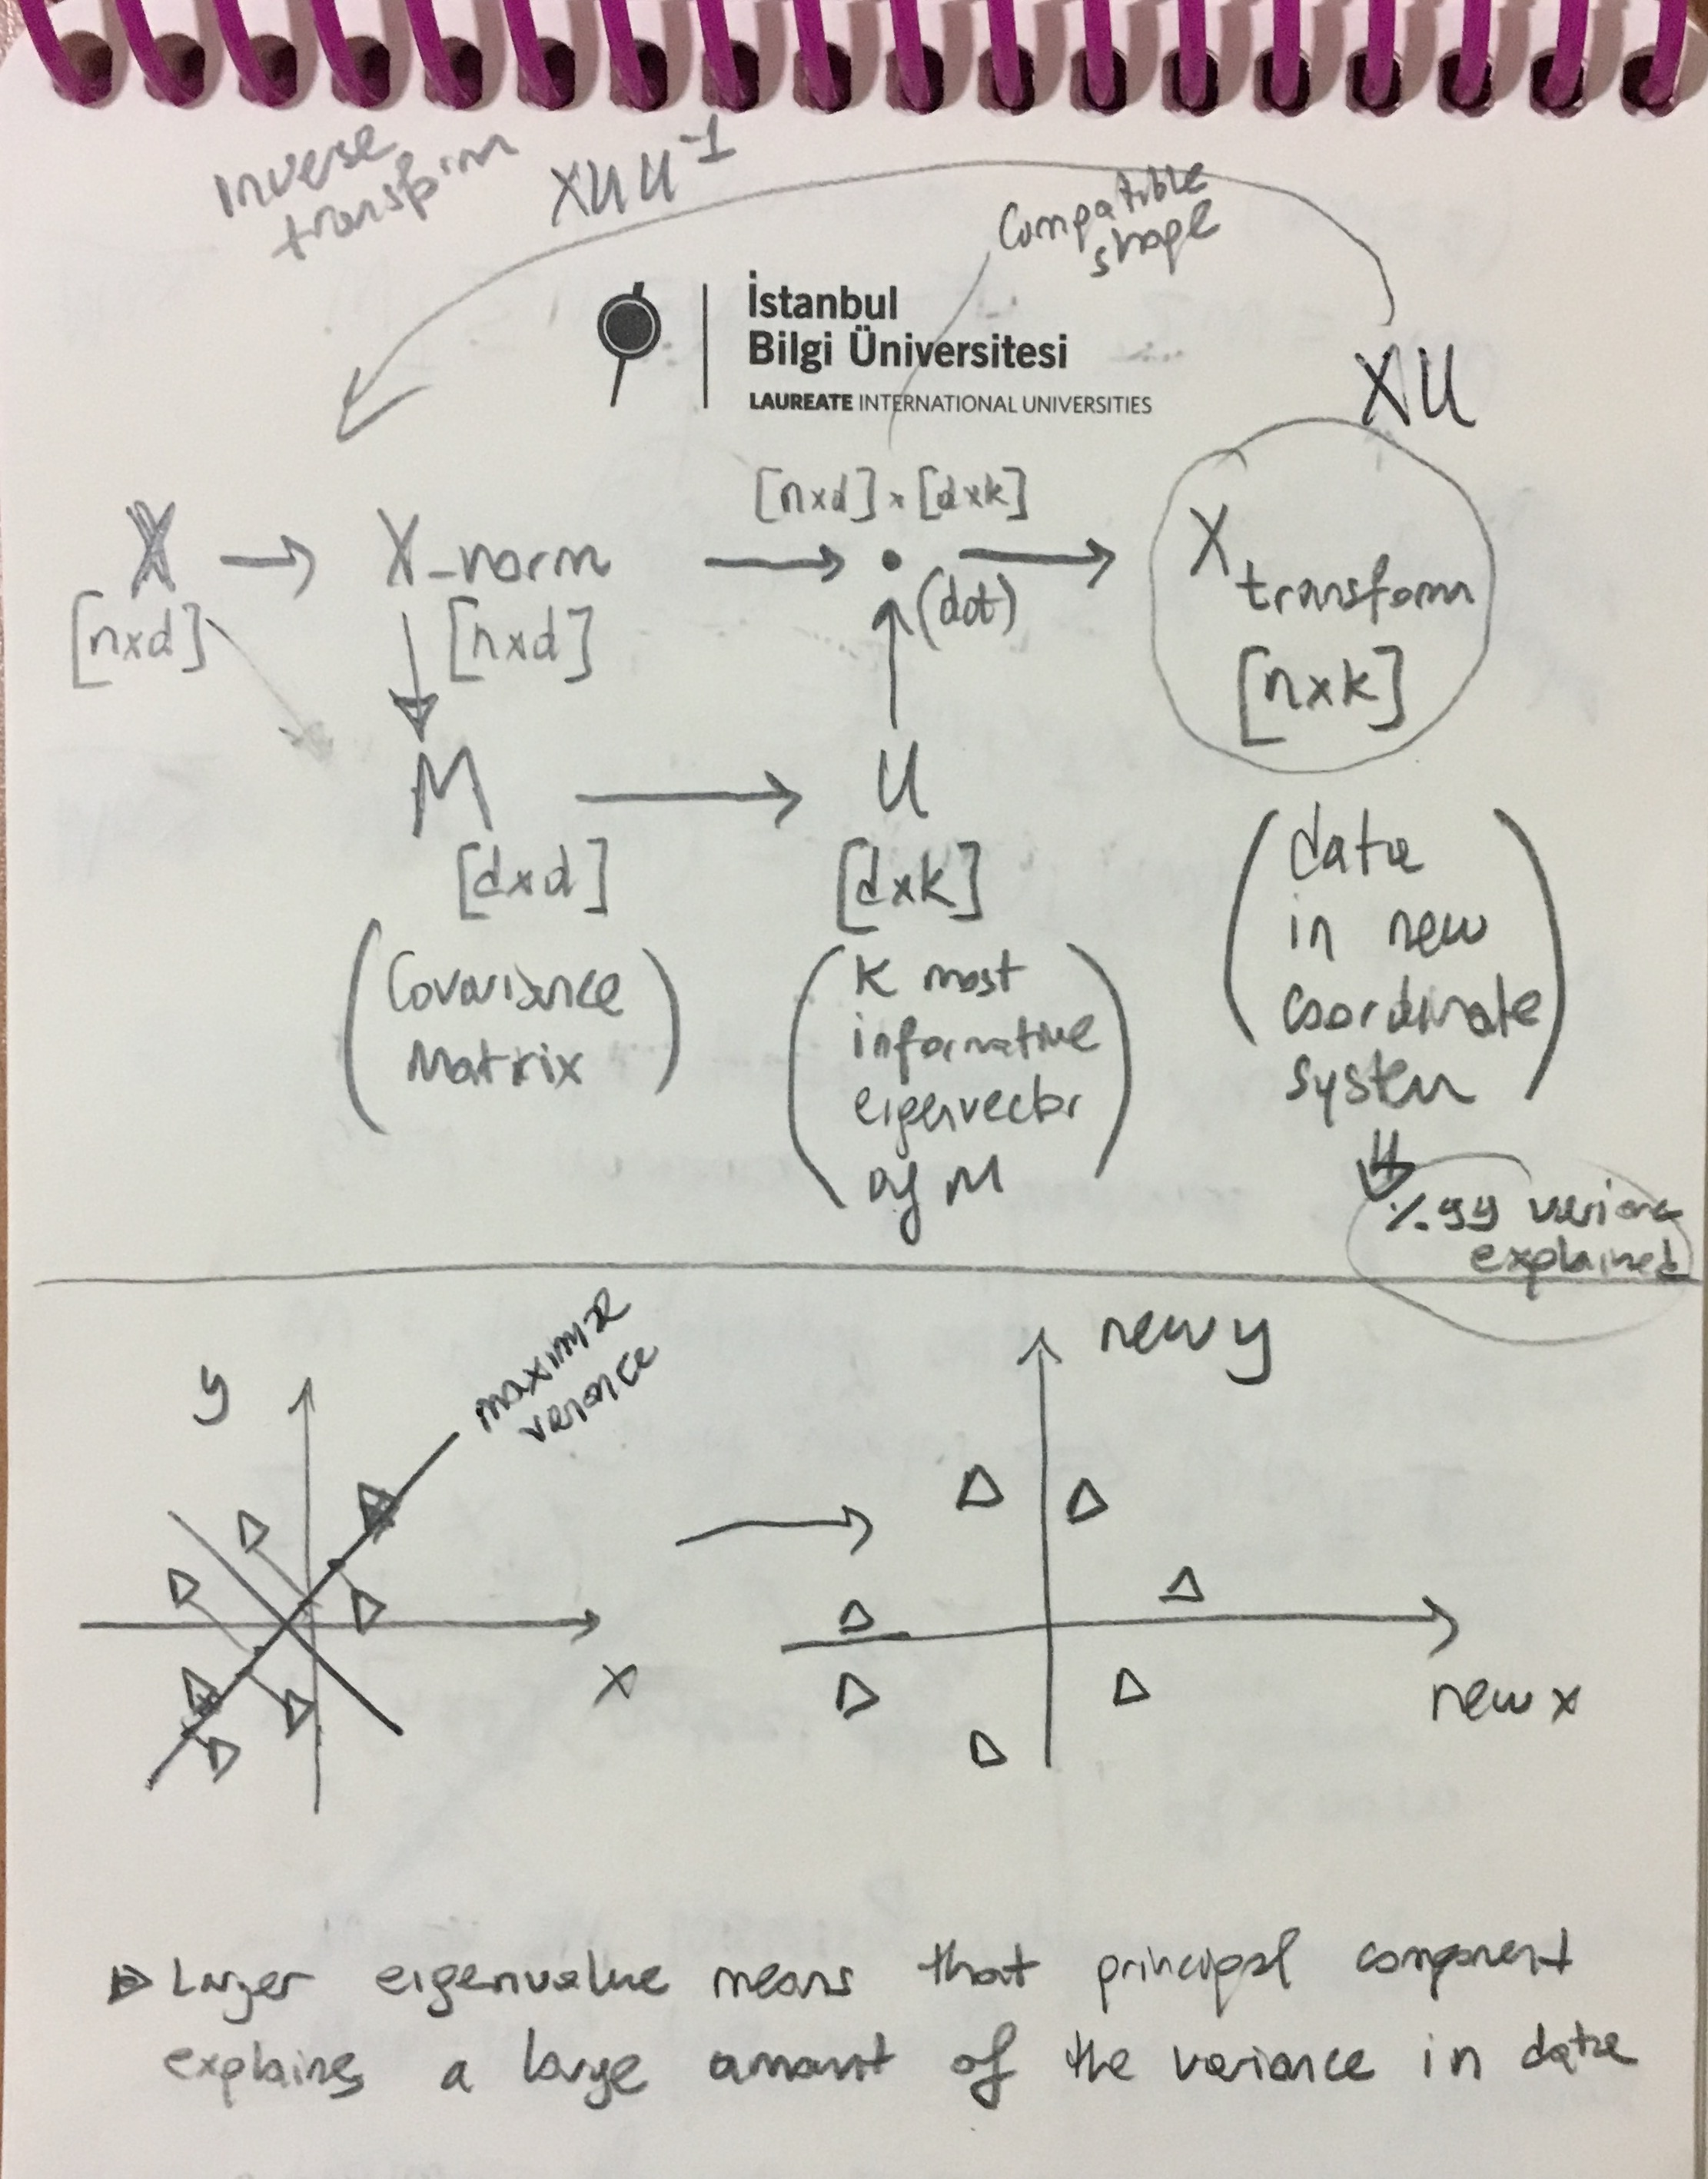 Inverse
transform
XUU⁻¹
Compatible
shape
İstanbul
Bilgi Üniversitesi
LAUREATE INTERNATIONAL UNIVERSITIES
XU
[nxd] x [dxk]
X → X_norm → • → X transform
(dot)
[nxd] [nxd] [nxk]
M → U
[dxd] [dxk]
(Covariance
Matrix)
(K most
informative
eigenvector
of M)
(data
in new
coordinate
system)
⇓
%99 variance
explained
maximize
variance
y
x
→
new y
new x
Larger eigenvalue means that principal component
explains a large amount of the variance in data